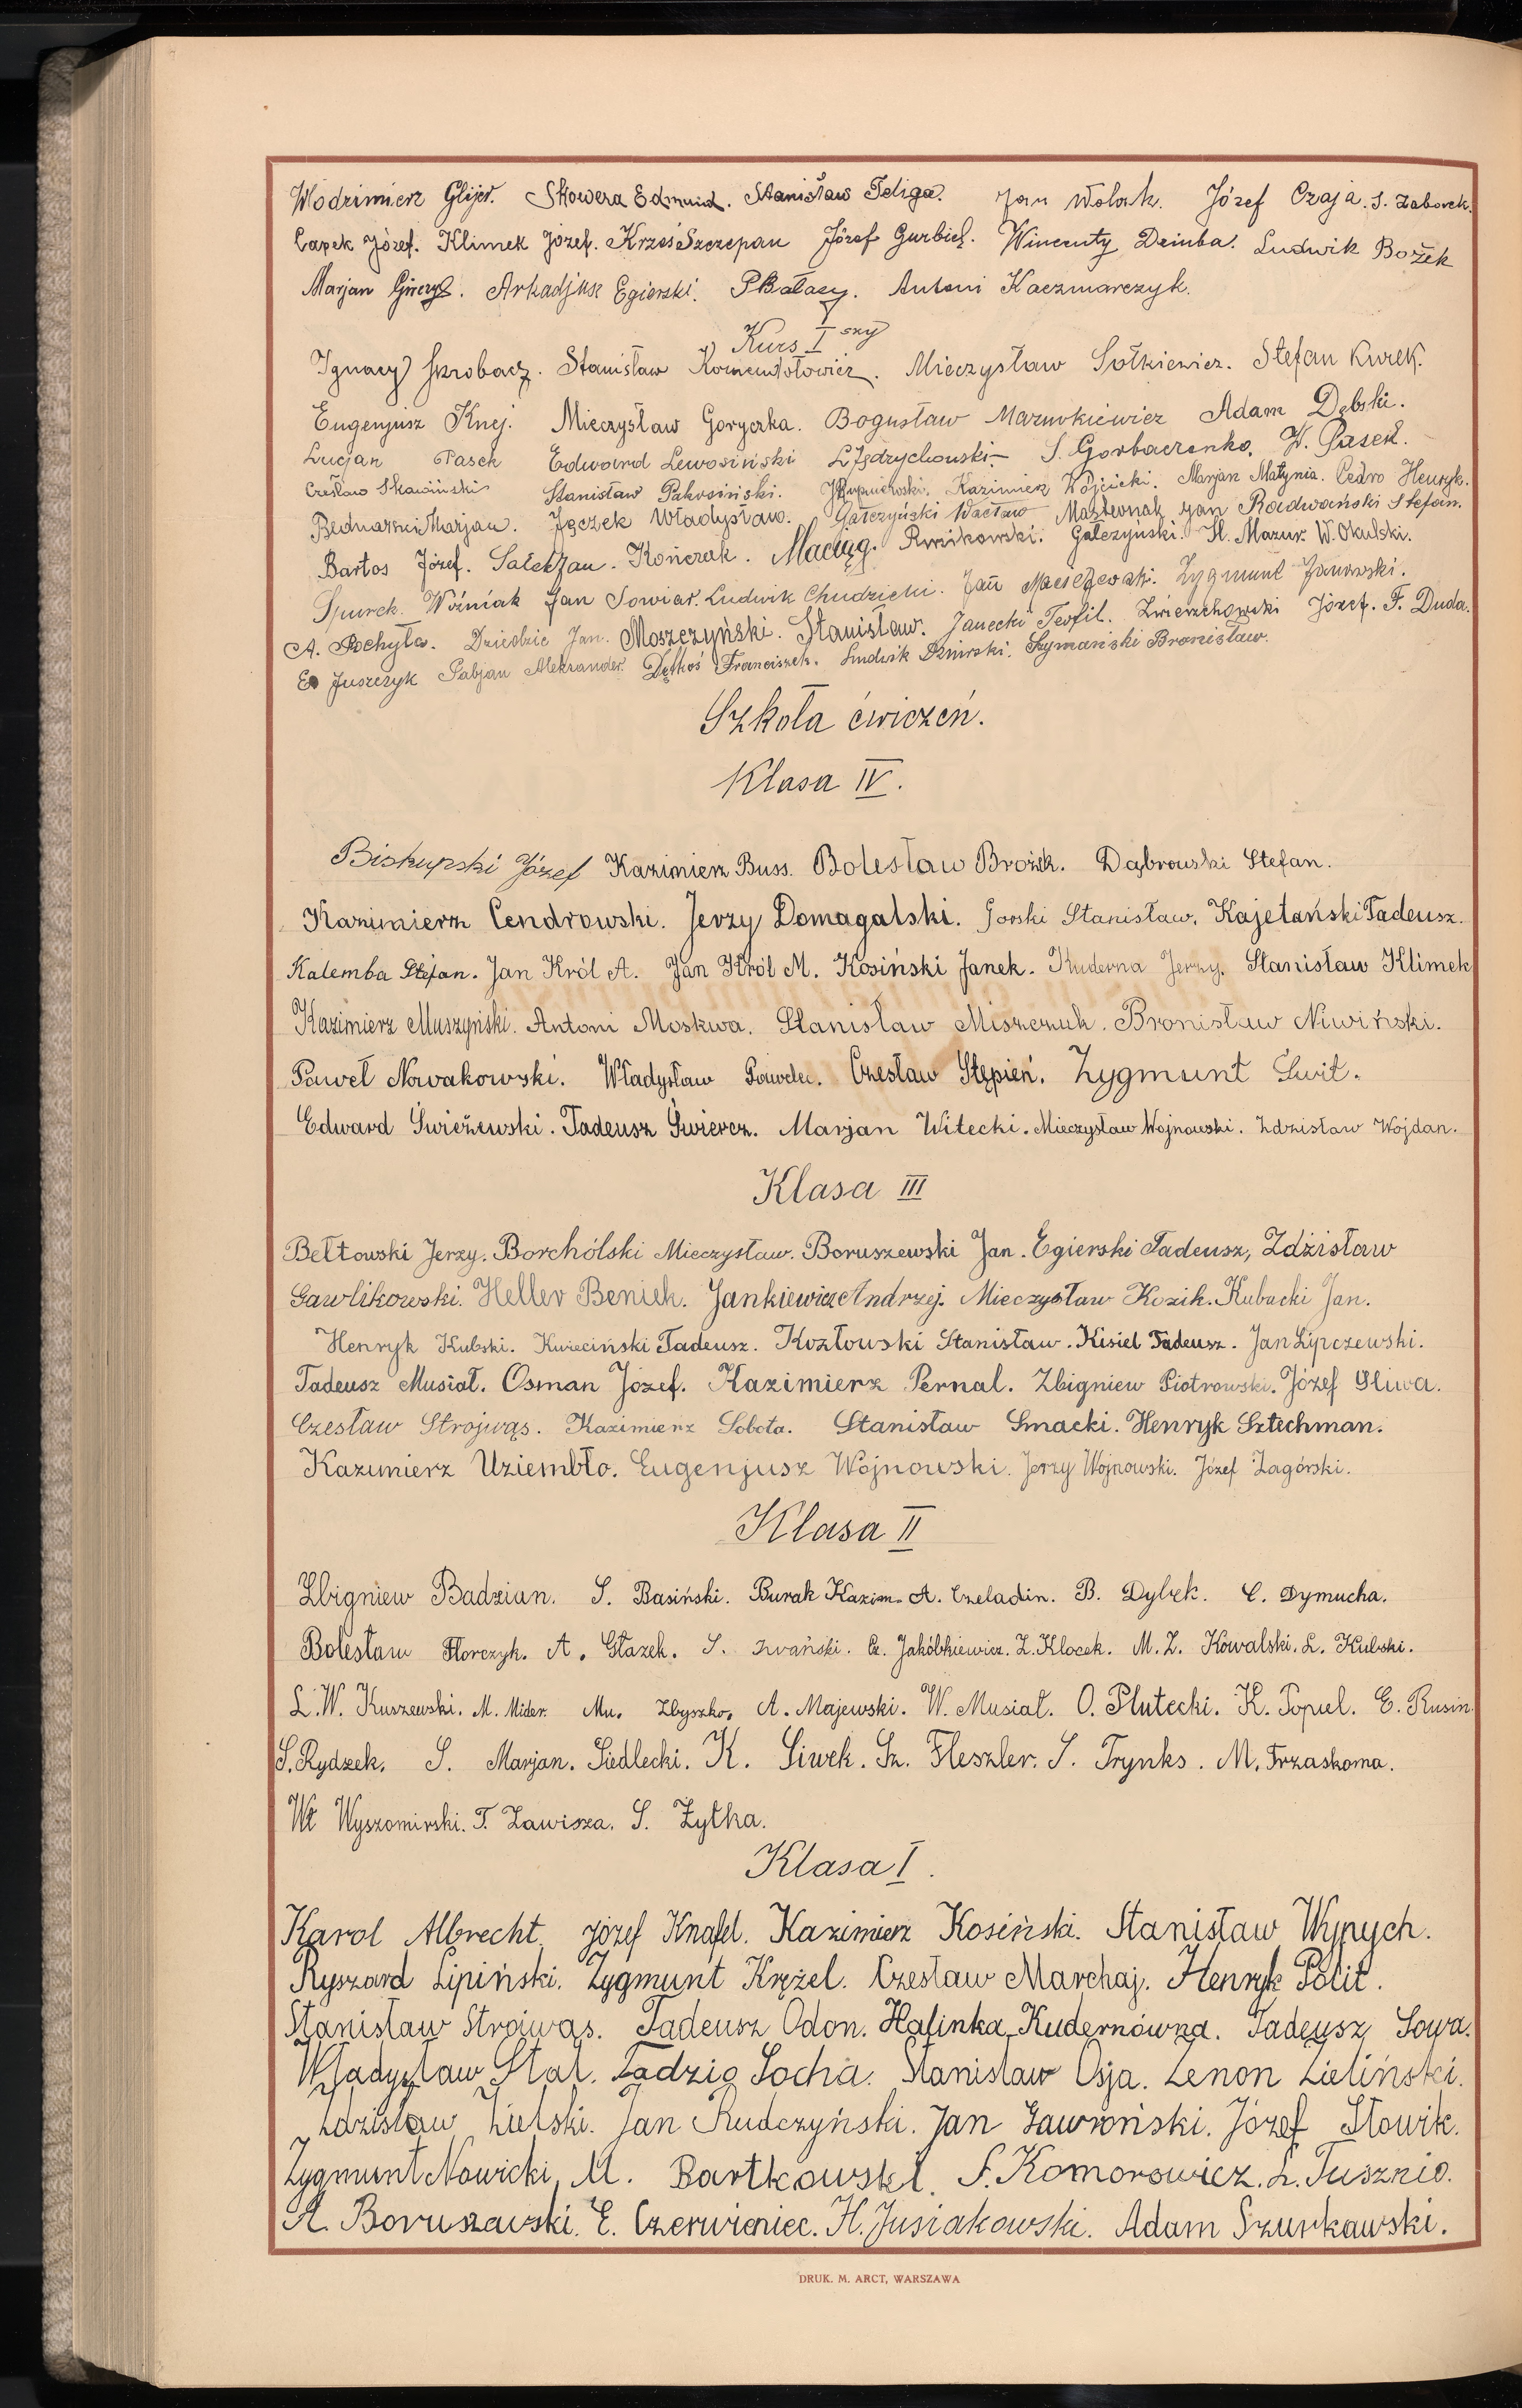 Włodzimierz Glijer. Skowera Edmund. Stanisław Feliga. Jan Wolak. Józef Czaja. S. Zaborek.
Capek Józef. Klimek Józef. Krześ Szczepan Józef Gurbiel. Wincenty Dziuba. Ludwik Bożek
Marjan Giercz. Arkadjusz Egierski. P Bałazy. Antoni Kaczmarczyk.
Kurs I szy
Ignacy Skrobacz. Stanisław Komentołowicz. Mieczysław Sołkiewicz. Stefan Kurek.
Eugenjusz Knej. Mieczysław Goryczka. Bogusław Mazurkiewicz Adam Dębski.
Lucjan Pasek Edward Lewosiński L Jędrychowski. S. Gorbaczenko. W. Pasek.
Czesław Skawiński Stanisław Pakosiński. Kazimierz Wójcicki. Marjan Matynia. Cedro Henryk.
Bednarski Marjan. Jączek Władysław. Gałczyński Wacław Masternak Jan Radwański Stefan.
Bartos Józef. Sałek Jan. Kończak. Maciąg. Rwikowski. Gałczyński. H. Mazur. W. Okulski.
Spurek. Woźniak Jan Sowiar. Ludwik Chudzicki. Jan Maciejewski. Zygmunt Janowski.
A. Pochyła. Dziedzic Jan. Moszczyński. Stanisław. Janecki Teofil. Zwierzchowski Józef. F. Duda.
E Juszczyk Pabjan Aleksander. Dętkoś Franciszek. Ludwik Żmirski. Szymański Bronisław.
Szkoła ćwiczeń.
Klasa IV.
Biskupski Józef Kazimierz Buss. Bolesław Brożek. Dąbrowski Stefan.
Kazimierz Cendrowski. Jerzy Domagalski. Gorski Stanisław. Kajetański Tadeusz.
Kalemba Stefan. Jan Król A. Jan Król M. Kosiński Janek. Kuderna Jerzy. Stanisław Klimek
Kazimierz Muszyński. Antoni Moskwa. Stanisław Miszczuk. Bronisław Niwiński.
Paweł Nowakowski. Władysław Pawelec. Czesław Stępień. Zygmunt Świt.
Edward Świeżewski. Tadeusz Świercz. Marjan Witecki. Mieczysław Wojnowski. Zdzisław Wójdan.
Klasa III
Bełtowski Jerzy. Borchólski Mieczysław. Boruszewski Jan. Egierski Tadeusz, Zdzisław
Gawlikowski. Heller Beniek. Jankiewicz Andrzej. Mieczysław Kozik. Kubacki Jan.
Henryk Kubski. Kwieciński Tadeusz. Kozłowski Stanisław. Kisiel Tadeusz. Jan Lipczewski.
Tadeusz Musiał. Osman Józef. Kazimierz Pernal. Zbigniew Piotrowski. Józef Śliwa.
Czesław Strojwąs. Kazimierz Sobota. Stanisław Smacki. Henryk Sztechman.
Kazimierz Uziembło. Eugenjusz Wojnowski. Jerzy Wojnowski. Józef Zagórski.
Klasa II
Zbigniew Badzian. S. Basiński. Burak Kazim. A. Czeladin. B. Dybek. C. Dymucha.
Bolesław Florczyk. A. Głazek. S. Iwański. Cz. Jakóbkiewicz. Z. Klocek. M. Z. Kowalski. L. Kubski.
L. W. Kuszewski. M. Mider. Mu. Zbyszko. A. Majewski. W. Musiał. O. Plutecki. K. Popiel. E. Rusin.
S. Rydzek. S. Marjan. Siedlecki. K. Siwek. Sz. Fleszler. S. Trynks. M. Trzaskoma.
Wł Wyszomirski. T. Zawisza. S. Żytka.
Klasa I.
Karol Albrecht. Józef Knafel. Kazimierz Kosiński. Stanisław Wypych.
Ryszard Lipiński. Zygmunt Krężel. Czesław Marchaj. Henryk Polit.
Stanisław Strójwąs. Tadeusz Odon. Halinka Kudernówna. Tadeusz Sowa.
Władysław Stal. Tadzio Socha. Stanisław Osja. Zenon Zieliński.
Zdzisław Zielski. Jan Rudczyński. Jan Gawroński. Józef Słowik.
Zygmunt Nowicki, M. Bartkowski. S. Komorowicz. L. Tusznio.
A. Boruszewski. E. Czerwieniec. H. Jusiakowski. Adam Szurkawski.
DRUK. M. ARCT, WARSZAWA